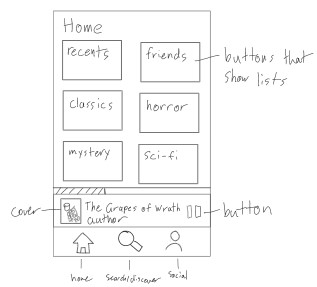 Home
recents
friends
buttons that
show lists
classics
horror
mystery
sci-fi
cover
The Grapes of Wrath
author
button
home
search/discover
social